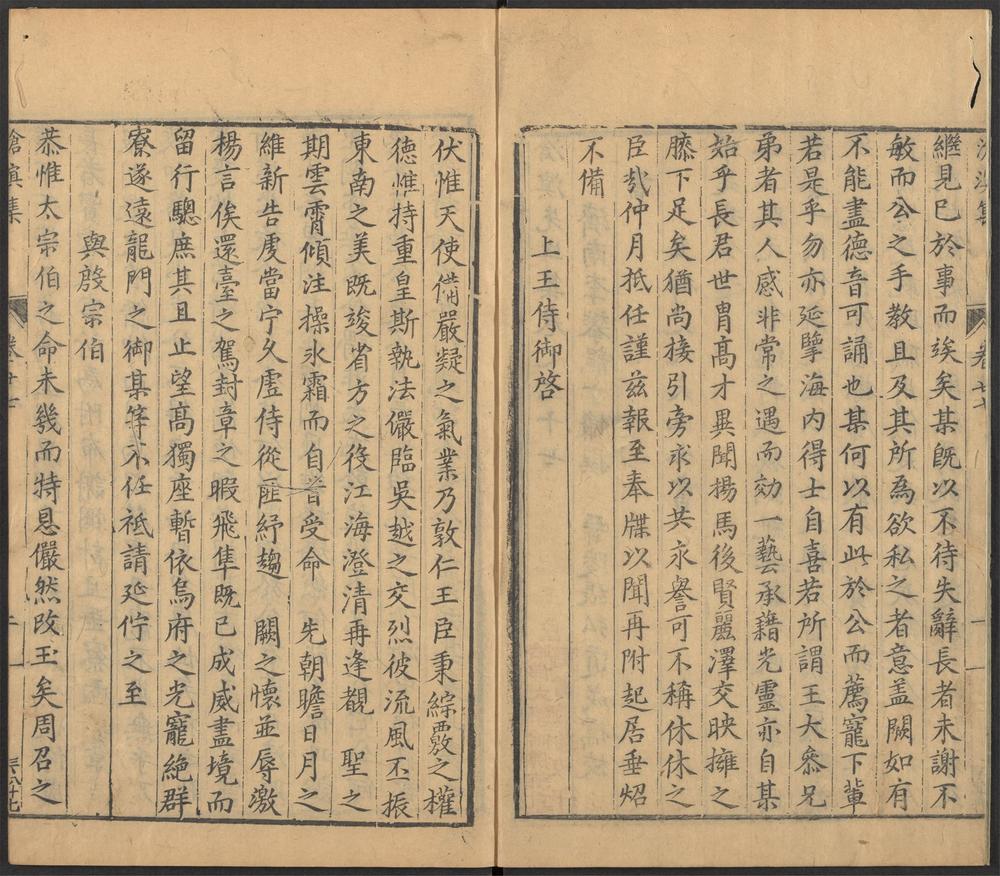 繼見已於事而竢矣某既以不待失辭長者未謝不
敏而公之手教且及其所為欲私之者意蓋闕如有
不能盡德音可誦也某何以有此於公而薦寵下輩
若是乎勿亦延擥海内得士自喜若所謂王大叅兄
弟者其人感非常之遇而効一藝承藉光靈亦自某
始乎長君世胄高才異聞揚馬後賢麗澤交映擁之
膝下足矣猶尚接引旁求以共永譽可不稱休休之
臣哉仲月抵任謹兹報至奉牒以聞再附起居垂炤
不備
上王侍御啓
伏惟天使備嚴凝之氣業乃敦仁王臣秉綜覈之權
德惟持重皇斯執法儼臨吳越之交烈彼流風丕振
東南之美既竣省方之役江海澄清再逢覩 聖之
期雲霄傾注操氷霜而自昔受命 先朝瞻日月之
維新告虔當宁久虛侍從匪紓趨 闕之懷並辱激
楊言俟還臺之駕封章之暇飛隼既已成威盡境而
留行驄庶其且止望高獨座暫依烏府之光寵絶群
寮遂遠龍門之御某等不任祗請延佇之至
與殷宗伯
恭惟太宗伯之命未幾而特恩儼然改玉矣周召之
滄溟集
卷